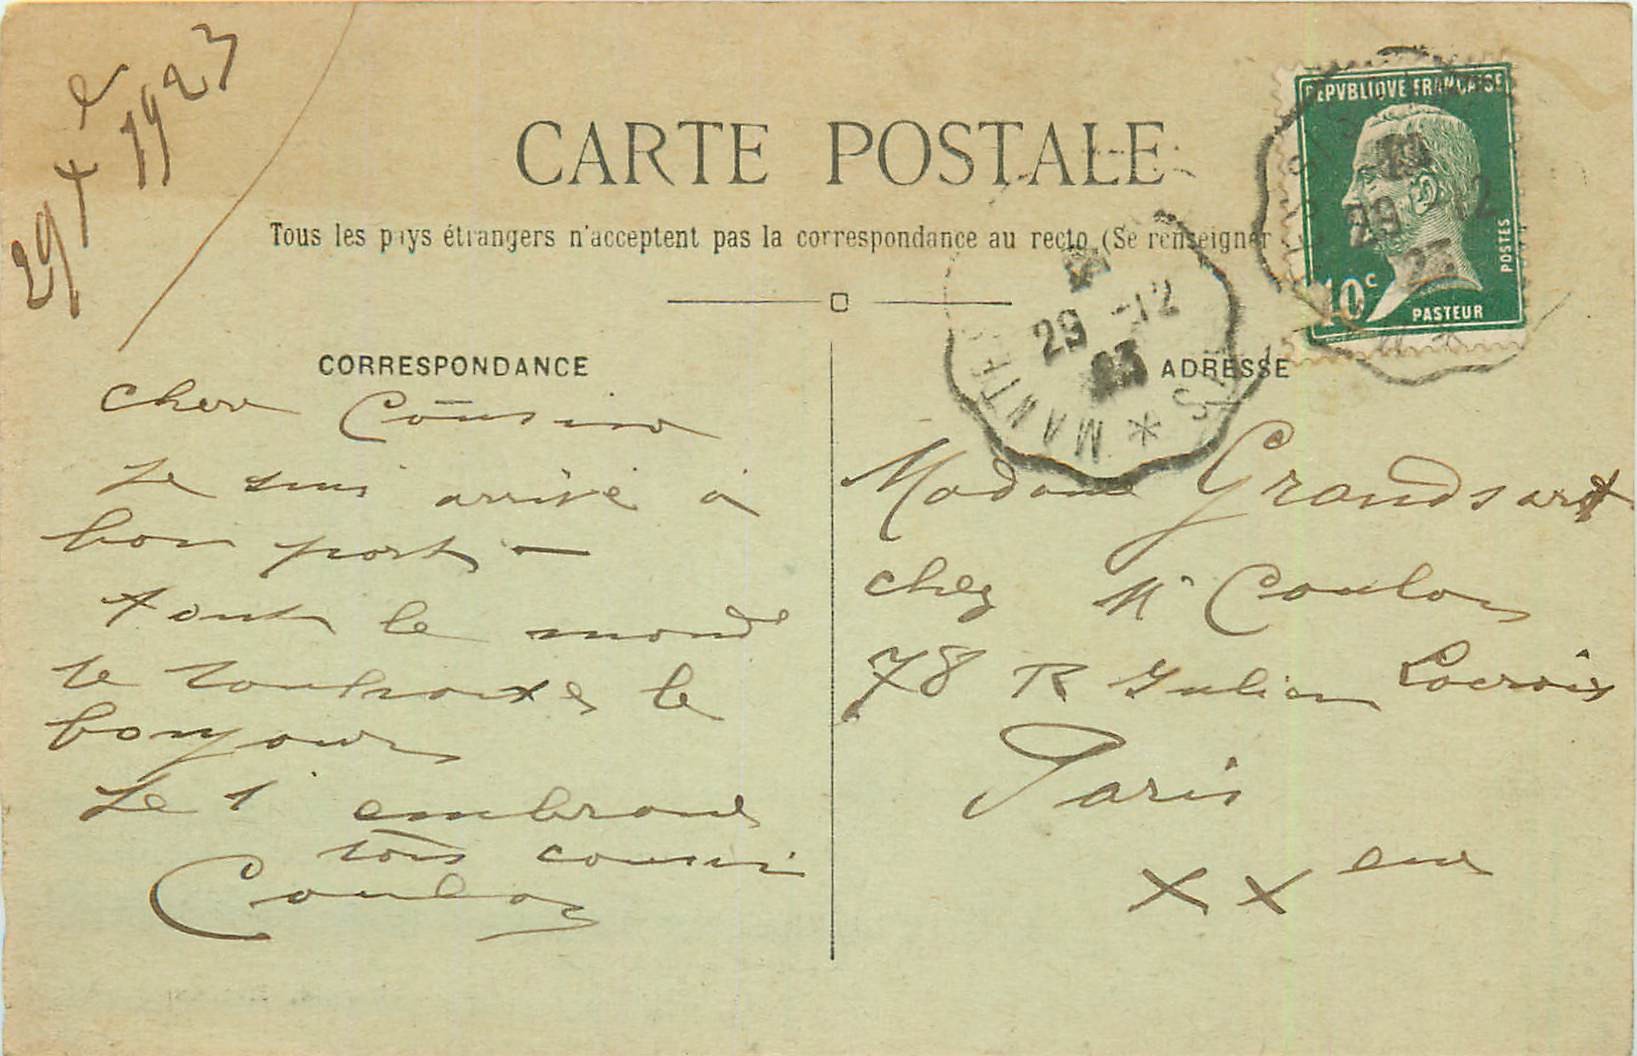 29 Xe 1923
CARTE POSTALE
Tous les pays étrangers n'acceptent pas la correspondance au recto (Se renseigner
REPVBLIQVE FRANÇAISE
POSTES
10c
PASTEUR
29 -12
23
MANTES
29 -12
23
CORRESPONDANCE
cher Cousin
Je suis arrivé à
bon port —
tout le monde
te souhaites le
bonjour
Je t' embrasse
ton cousin
Coulon
ADRESSE
Madame Grandsart
chez Mr Coulon
78 R Julien Lacroix
Paris
XXeme